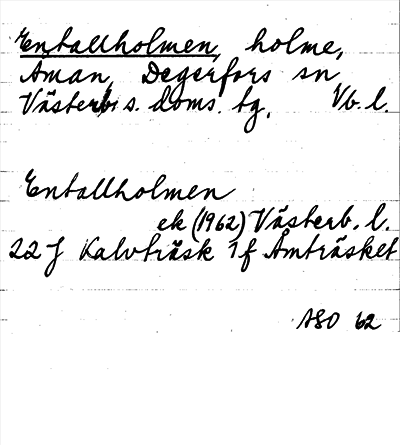 Entallholmen, holme,
Åman, Degerfors sn
Västerb:s. doms. tg. Vb. l.
Entallholmen
ek (1962) Västerb. l.
22 J Kalvträsk 1 f Åmträsket
ASO 62